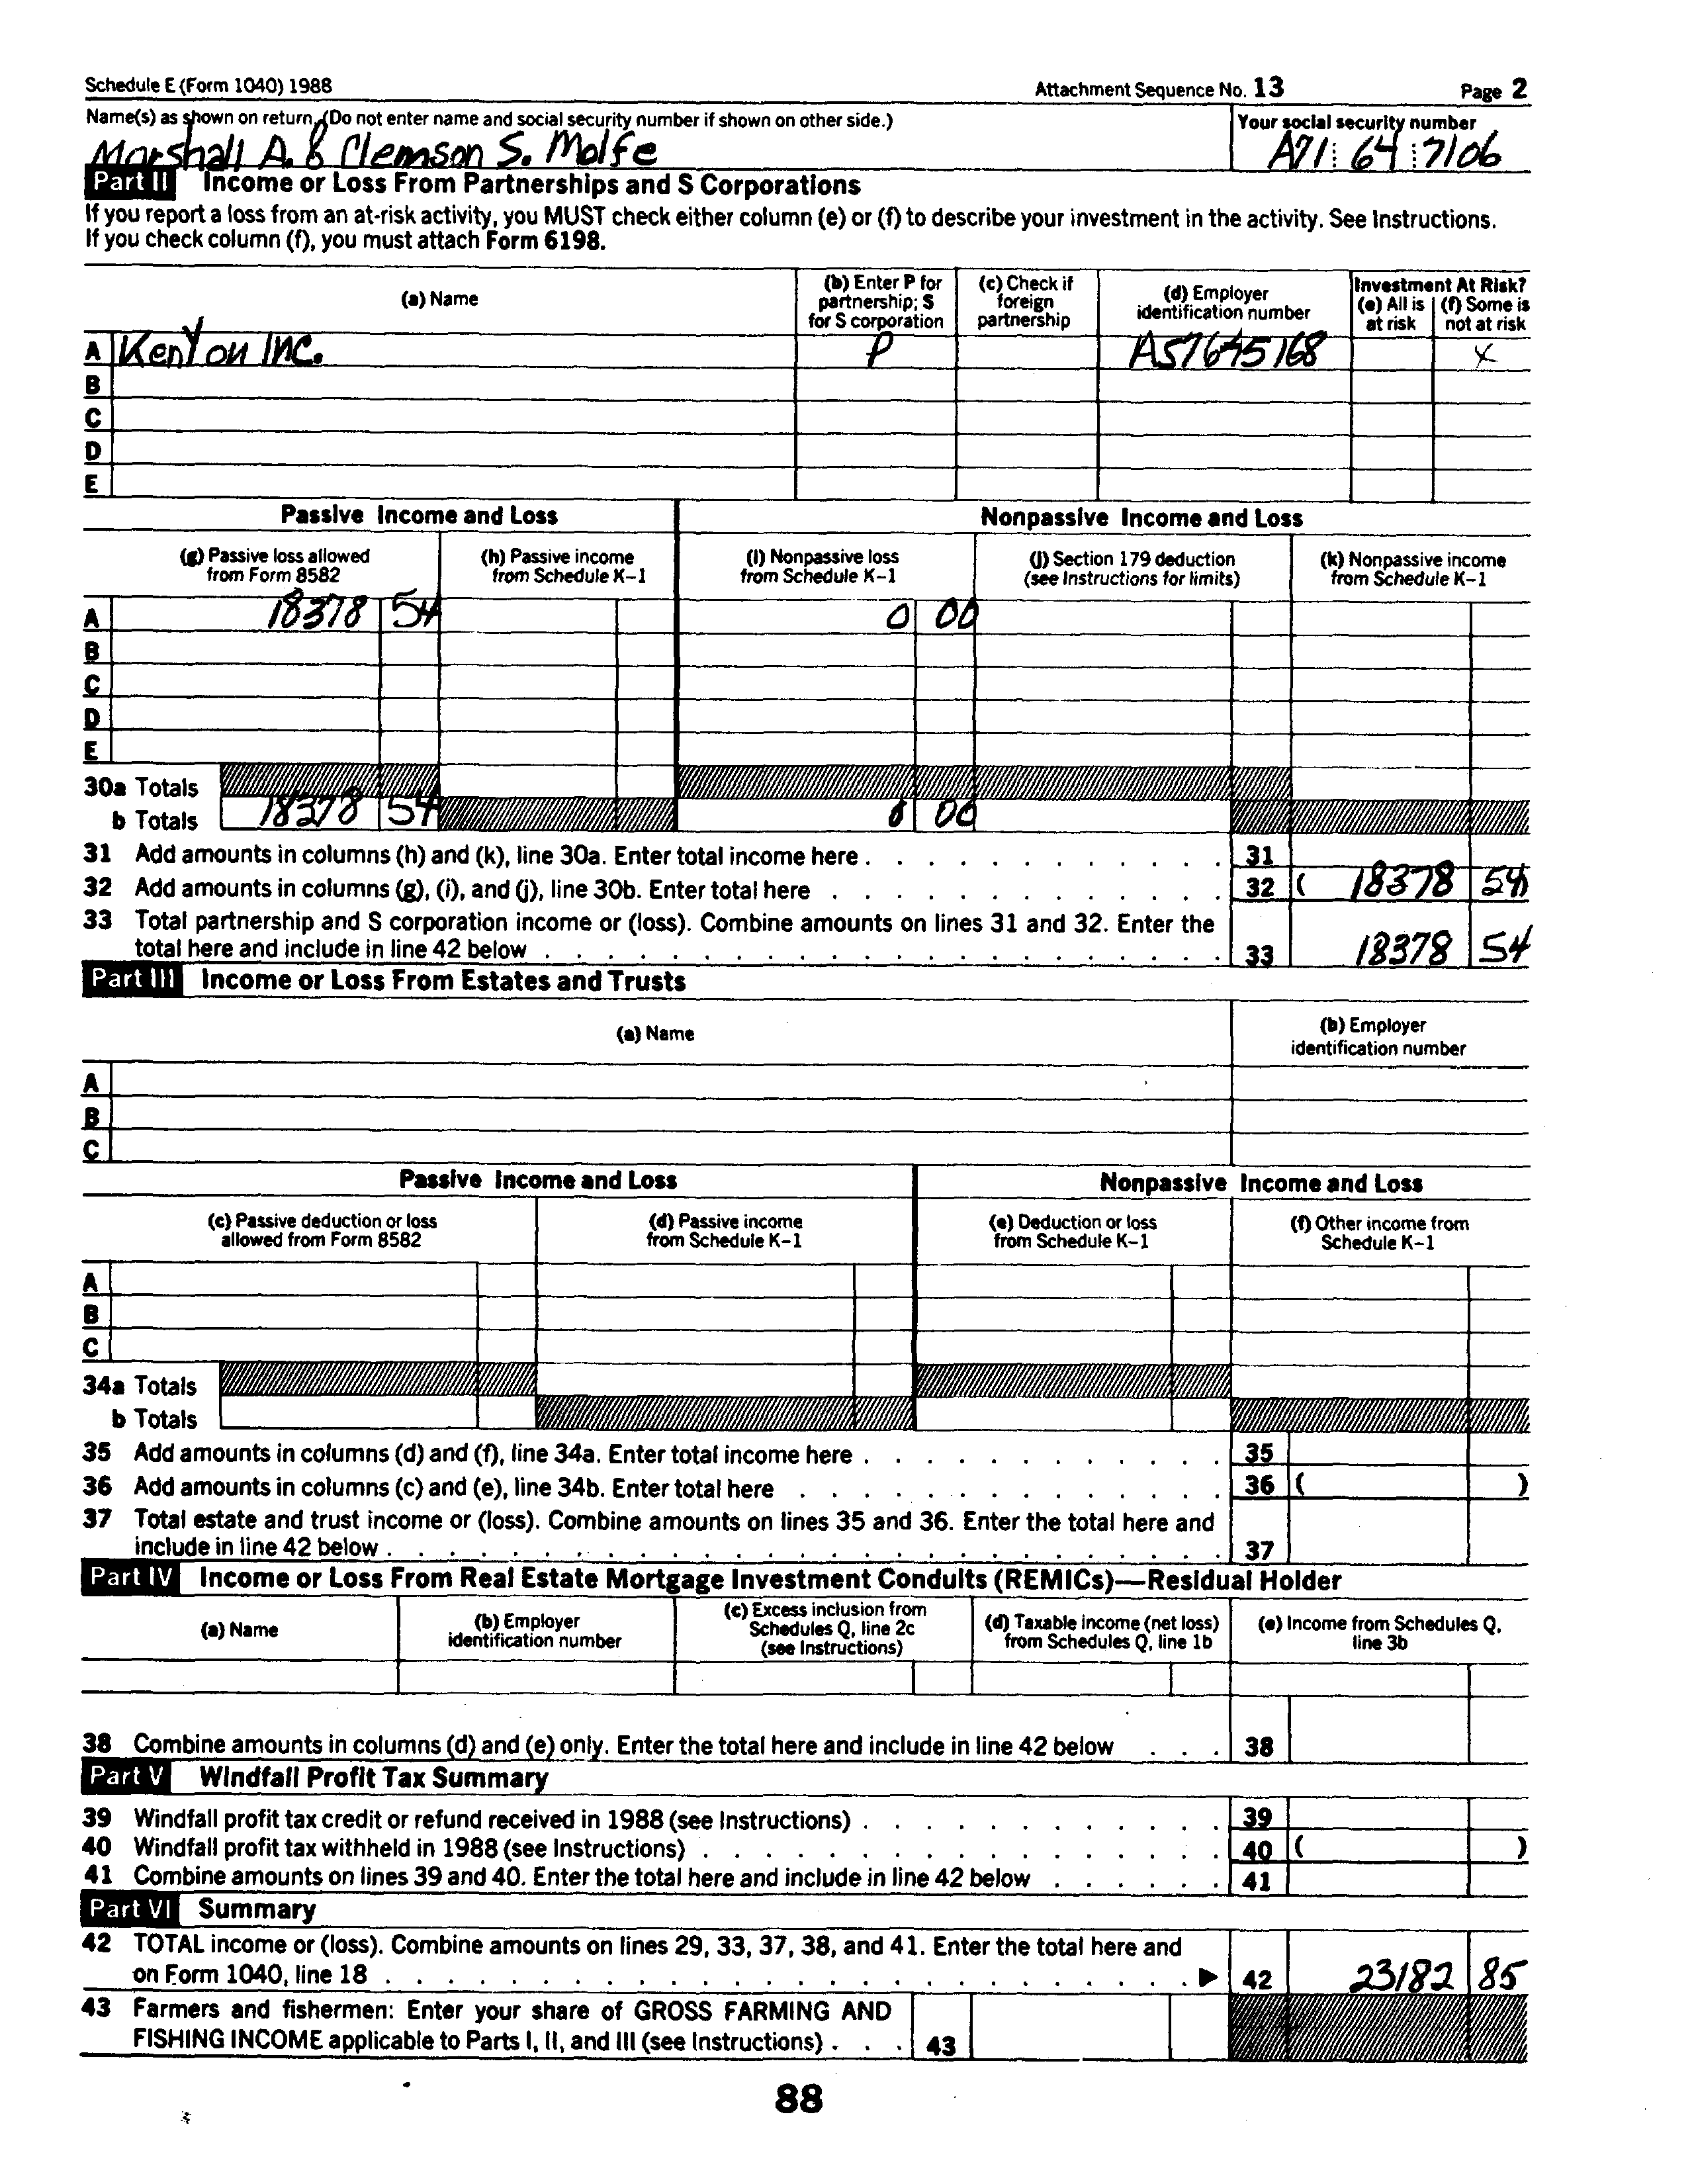 Schedule E (Form 1040) 1988 Attachment Sequence No. 13 Page 2
Name(s) as shown on return. (Do not enter name and social security number if shown on other side.) Your social security number
Marshall A. & Clemson S. Molfe A71 64 7106
Part II Income or Loss From Partnerships and S Corporations
If you report a loss from an at-risk activity, you MUST check either column (e) or (f) to describe your investment in the activity. See Instructions.
If you check column (f), you must attach Form 6198.
(a) Name (b) Enter P for partnership; S for S corporation (c) Check if foreign partnership (d) Employer identification number Investment At Risk? (e) All is at risk (f) Some is not at risk
A Kenyon Inc. P A57645168 X
B
C
D
E
Passive Income and Loss Nonpassive Income and Loss
(g) Passive loss allowed from Form 8582 (h) Passive income from Schedule K-1 (i) Nonpassive loss from Schedule K-1 (j) Section 179 deduction (see Instructions for limits) (k) Nonpassive income from Schedule K-1
A 18378 54 0 00
B
C
D
E
30a Totals
b Totals 18378 54 0 00
31 Add amounts in columns (h) and (k), line 30a. Enter total income here . . . 31
32 Add amounts in columns (g), (i), and (j), line 30b. Enter total here . . . 32 ( 18378 54)
33 Total partnership and S corporation income or (loss). Combine amounts on lines 31 and 32. Enter the
total here and include in line 42 below . . . 33 18378 54
Part III Income or Loss From Estates and Trusts
(a) Name (b) Employer identification number
A
B
C
Passive Income and Loss Nonpassive Income and Loss
(c) Passive deduction or loss allowed from Form 8582 (d) Passive income from Schedule K-1 (e) Deduction or loss from Schedule K-1 (f) Other income from Schedule K-1
A
B
C
34a Totals
b Totals
35 Add amounts in columns (d) and (f), line 34a. Enter total income here . . . 35
36 Add amounts in columns (c) and (e), line 34b. Enter total here . . . 36 ( )
37 Total estate and trust income or (loss). Combine amounts on lines 35 and 36. Enter the total here and
include in line 42 below . . . 37
Part IV Income or Loss From Real Estate Mortgage Investment Conduits (REMICs)—Residual Holder
(a) Name (b) Employer identification number (c) Excess inclusion from Schedules Q, line 2c (see Instructions) (d) Taxable income (net loss) from Schedules Q, line 1b (e) Income from Schedules Q, line 3b
38 Combine amounts in columns (d) and (e) only. Enter the total here and include in line 42 below . . . 38
Part V Windfall Profit Tax Summary
39 Windfall profit tax credit or refund received in 1988 (see Instructions) . . . 39
40 Windfall profit tax withheld in 1988 (see Instructions) . . . 40 ( )
41 Combine amounts on lines 39 and 40. Enter the total here and include in line 42 below . . . 41
Part VI Summary
42 TOTAL income or (loss). Combine amounts on lines 29, 33, 37, 38, and 41. Enter the total here and
on Form 1040, line 18 . . . ▶ 42 23182 85
43 Farmers and fishermen: Enter your share of GROSS FARMING AND
FISHING INCOME applicable to Parts I, II, and III (see Instructions) . . . 43
88